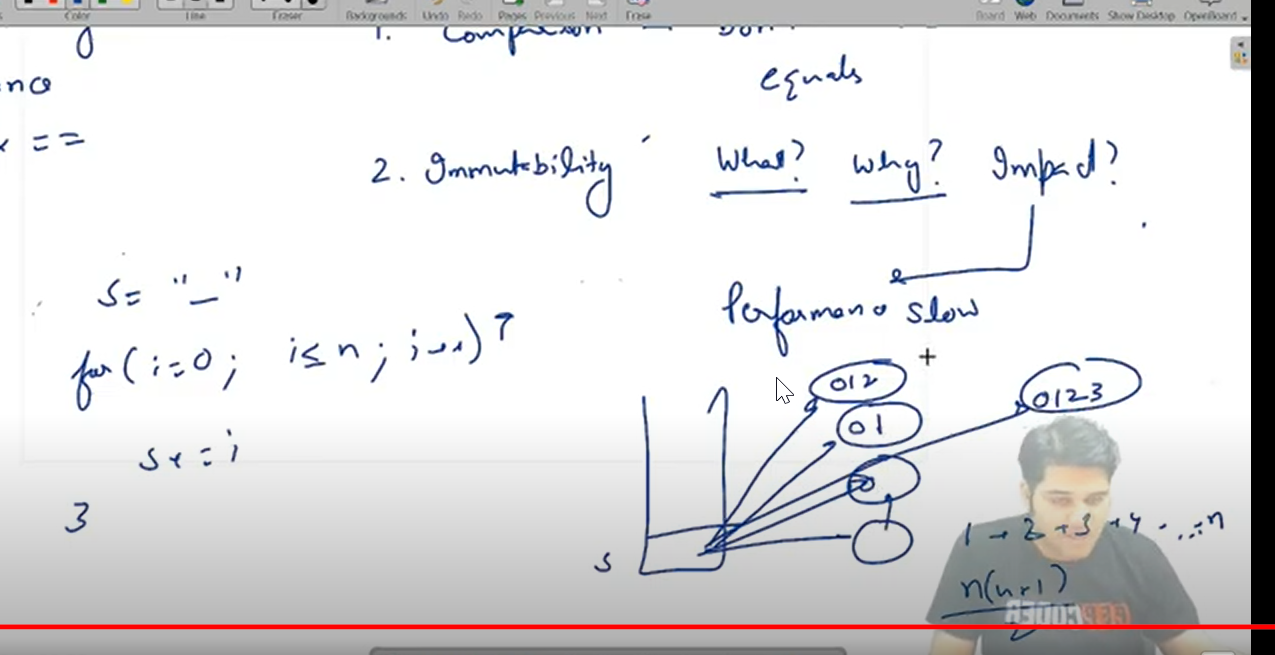 Color Line Eraser Backgrounds Undo Redo Pages Previous Next Erase Board Web Documents Show Desktop OpenBoard
1.
equals
==
2. Immutability What? Why? Impact?
s= "_"
Performance slow
for( i=0; i≤n; i++) {
012
0123
01
s+=i
0
}
s
1+2+3+4-...n
n(n+1)
2